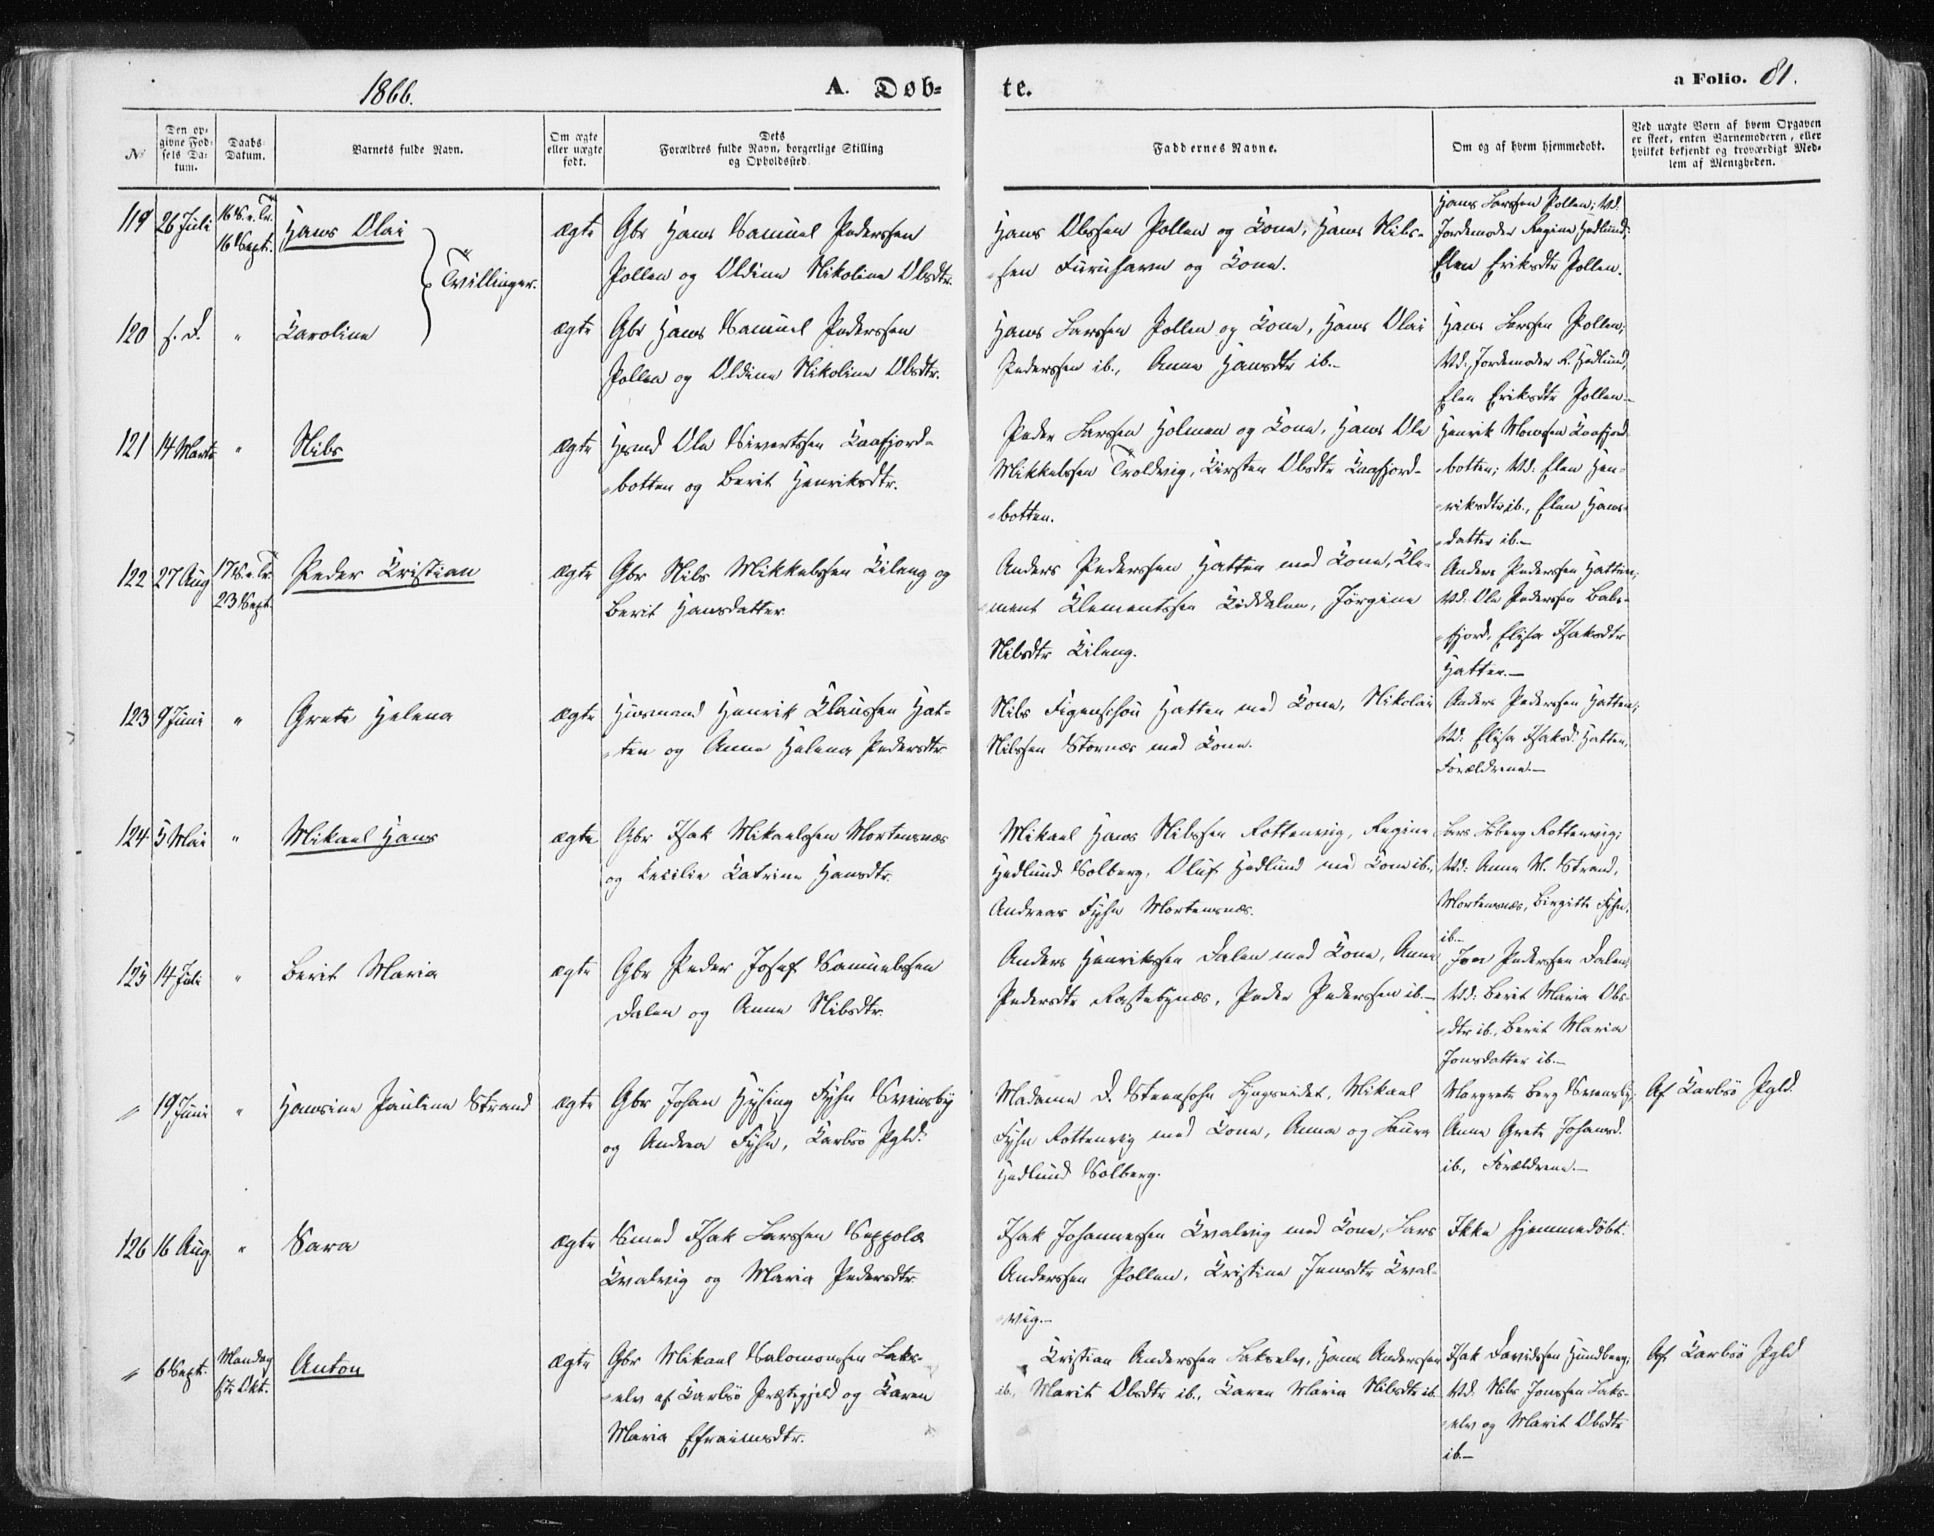 1866.
A. Døb-
te.
a Folio. 81.
No
Den op-
givne Fød-
sels Da-
tum.
Daabs
Datum.
Barnets fulde Navn.
Om ægte
eller uægte
født.
Dets
Forældres fulde Navn, borgerlige Stilling
og Opholdssted.
Faddernes Navne.
Om og af hvem hjemmedøbt.
Ved uægte Børn af hvem Opgaven
er skeet, enten Barnemoderen, eller
hvilket bekjendt og troværdigt Med-
lem af Menigheden.
119 26 Juli 16 S. e. Tr.
16 Sept.
Hans Olai
Tvillinger.
ægte
Gbr Hans Samuel Pederssen
Pollen og Oldine Nikoline Olsdtr.
Hans Olssen Pollen og Kone, Hans Nils-
sen Furuhavn og Kone.
Hans Larssen Pollen; Vd.
Jordemoder Regine Hedlund;
Elen Eriksdtr Pollen.
120 s. D. "
Karoline
ægte
Gbr Hans Samuel Pederssen
Pollen og Oldine Nikoline Olsdtr.
Hans Larssen Pollen og Kone, Hans Olai
Pederssen ib., Anne Hansdtr ib.-
Hans Larssen Pollen;
Vd: Jordemoder R. Hedlund,
Elen Eriksdtr Pollen-
121 14 Marts "
Nils
ægte
Hsmd Ole Sivertssen Kaafjord-
botten og Berit Henriksdtr.
Peder Larssen Holmen og Kone, Hans Ole
Mikkelssen Troldvig, Kirsten Olsdtr Kaafjord-
botten.
Henrik Monssen Kaafjord
botten; Vd: Elen Hen-
riksdtr ib., Elen Hans-
datter ib.-
122 27 Aug 17 S. e. Tr.
23 Sept.
Peder Kristian
ægte
Gbr Nils Mikkelssen Kileng og
Berit Hansdatter
Anders Pederssen Hatten med Kone, Kle-
ment Klementssen Kiddalen, Jørgine
Nilsdtr Kileng.
Anders Pederssen Hatten;
Vd: Ole Pederssen Bals-
fjord, Elisa Isaksdtr
Hatten.-
123 9 Juni "
Grete Helena
ægte
Husmand Henrik Klaussen Hat-
ten og Anne Helena Pedersdtr
Nils Figenschou Hatten med Kone, Nikolai
Nilssen Stornæs med Kone.
Anders Pederssen Hatten;
Vd: Elisa Isaksd. Hatten,
Forældrene.-
124 5 Mai "
Mikael Hans
ægte
Gbr Isak Mikaelssen Mortensnæs
og Cecilie Katrine Hansdtr.
Mikael Hans Nilssen Rottenvig, Regine
Hedlund Solberg, Oluf Hedlund med Kone ib.,
Andreas Fyhn Mortensnæs.
Lars Leberg Rottenvig;
Vd: Anne M. Strand,
Mortensnæs, Birgitte Fyhn,
ib.-
125 14 Juli "
Berit Maria
ægte
Gbr Peder Josef Samuelssen
Dalen og Anne Nilsdtr.
Anders Henrikssen Dalen med Kone, Anne
Pedersdtr Rastebynæs, Peder Pederssen ib.-
Jon Pederssen Dalen,
Vd: Berit Maria Ols-
dtr ib., Berit Maria
Jonsdatter ib.-
" 19 Juni "
Hansine Pauline Strand
ægte
Gbr Johan Hysing Fyhn Svensby
og Andrea Fyhn, Karlsø Pgld:
Madame D. Steensohn Lyngseidet, Mikael
Fyhn Rottenvig med Kone, Anna og Laura
Hedlund Solberg.
Margrete Berg Svensby;
Anne Grete Johansd.
ib., Forældrene.-
Af Karlsø Pgld.
126 16 Aug "
Sara
ægte
Smed Isak Larssen Seppolæ
Kvalvig og Maria Pedersdtr
Isak Johannessen Kvalvig med Kone, Lars
Anderssen Pollen, Kristine Jensdtr Kval-
vig.-
Ikke hjemmedøbt.
" 6 Sept. Mandag
1ste Okt.
Anton
ægte
Gbr Mikael Salomonssen Laks-
elv af Karlsø Præstegjeld og Karen
Maria Efraimsdtr.
Kristian Anderssen Lakselv, Hans Anderssen
ib., Marit Olsdtr ib., Karen Maria Nilsdtr ib.
Isak Davidssen Hundberg;
Vd: Nils Jonssen Laks-
elv og Marit Olsdtr
ib.-
Af Karlsø Pgld